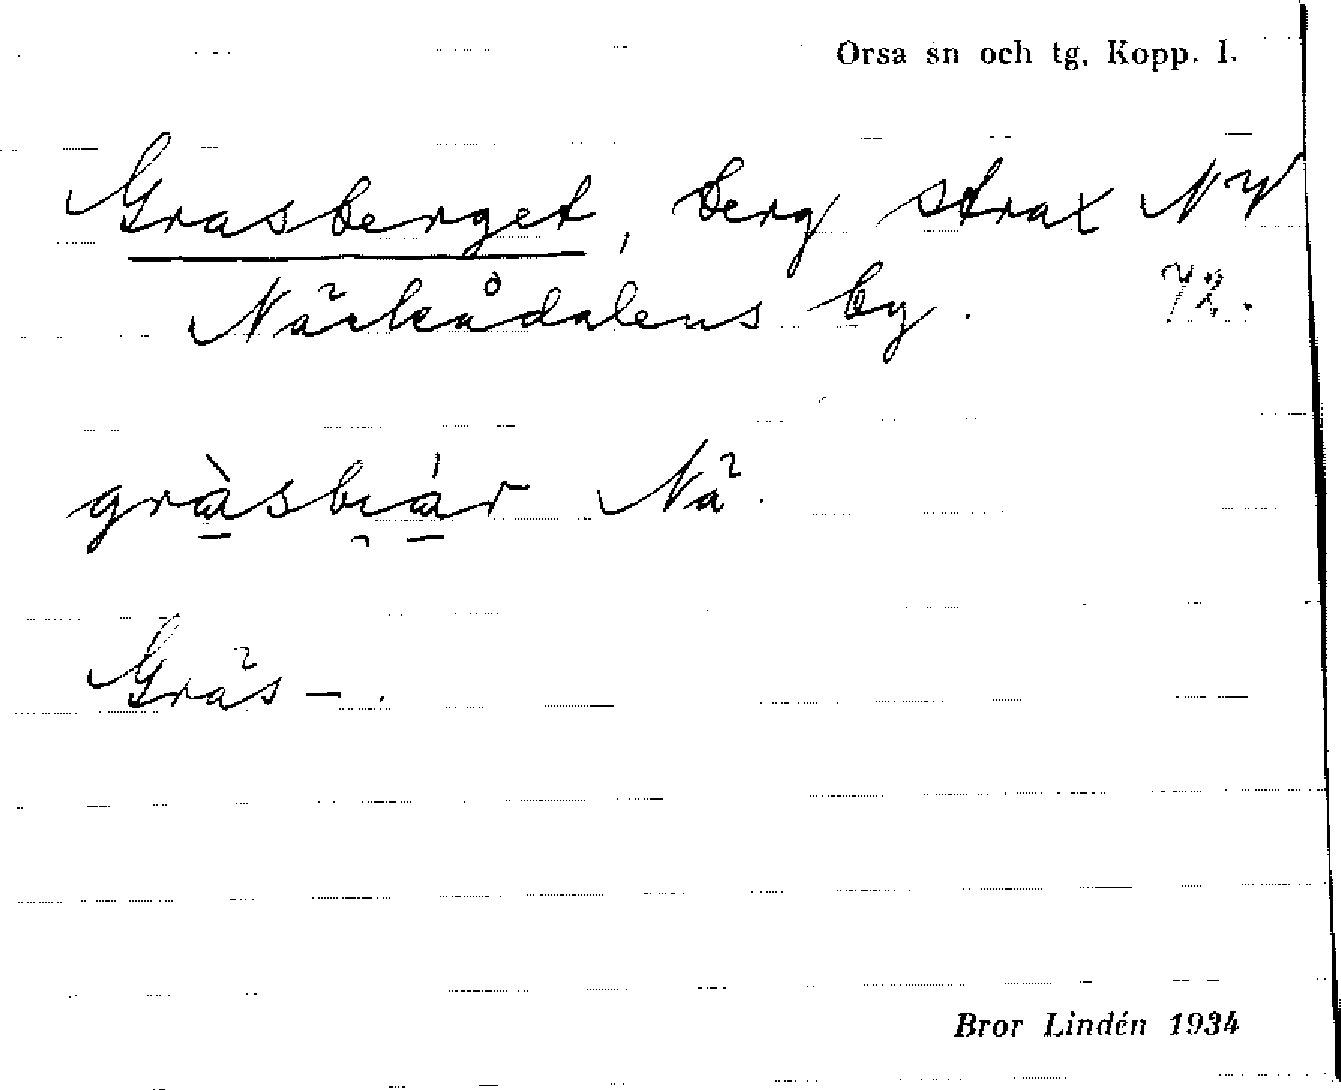 Orsa sn och tg, Kopp. l.
Grasberget, berg strax NV
Näckådalens by. 72.
gràsbiár Nä.
Gräs-.
Bror Lindén 1934